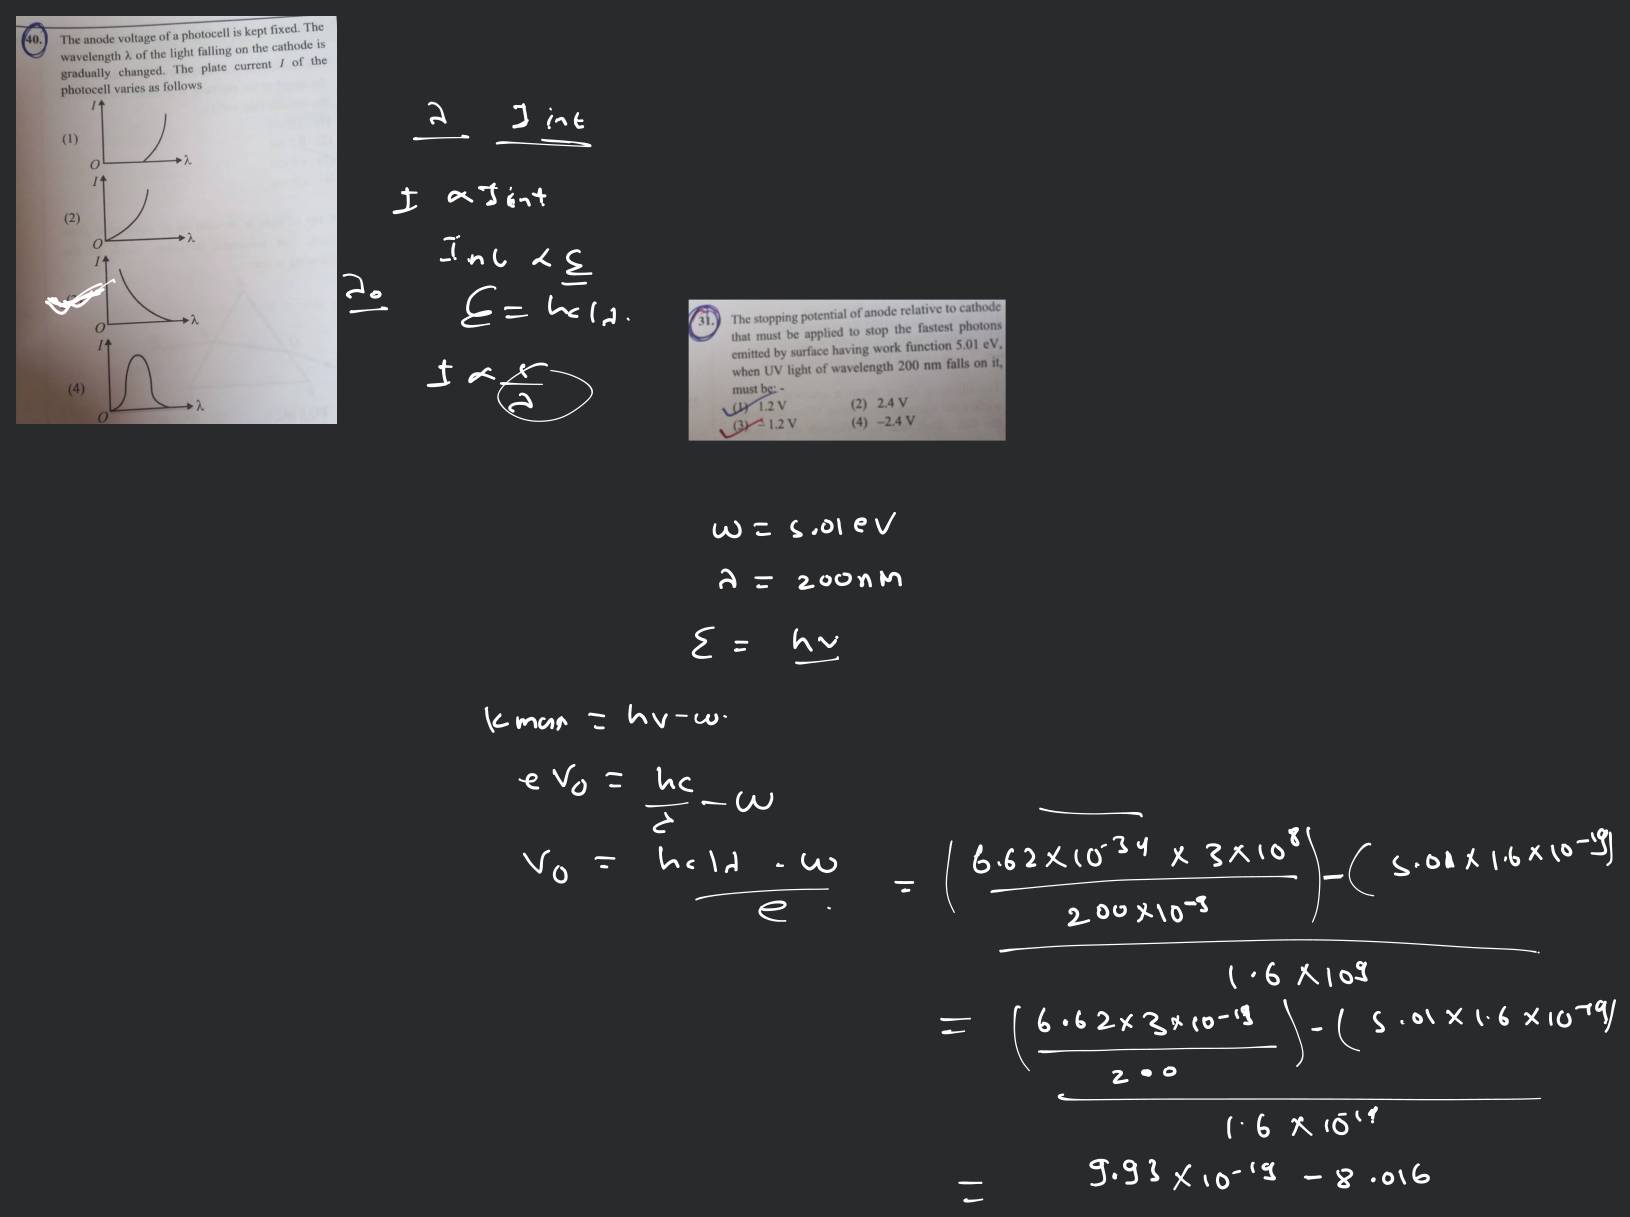 40. The anode voltage of a photocell is kept fixed. The
wavelength λ of the light falling on the cathode is
gradually changed. The plate current I of the
photocell varies as follows
(1) I O λ
(2) I O λ
I O λ
(4) I O λ
λ I int
I ∝ I int
Int ∝ ε
λ₀ ε = hc/λ.
I ∝ 1/λ
31. The stopping potential of anode relative to cathode
that must be applied to stop the fastest photons
emitted by surface having work function 5.01 eV,
when UV light of wavelength 200 nm falls on it,
must be: -
(1) 1.2 V (2) 2.4 V
(3) – 1.2 V (4) –2.4 V
ω = 5.01 eV
λ = 200 nm
ε = hν
K max = hν - ω.
e V₀ = hc/λ - ω
V₀ = (hc/λ - ω)/e. = ((6.62 × 10⁻³⁴ × 3 × 10⁸)/(200 × 10⁻⁹)) - (5.01 × 1.6 × 10⁻¹⁹)
1.6 × 10⁹
= ((6.62 × 3 × 10⁻¹⁹)/200) - (5.01 × 1.6 × 10⁻¹⁹)
1.6 × 10¹⁹
= 9.93 × 10⁻¹⁹ - 8.016